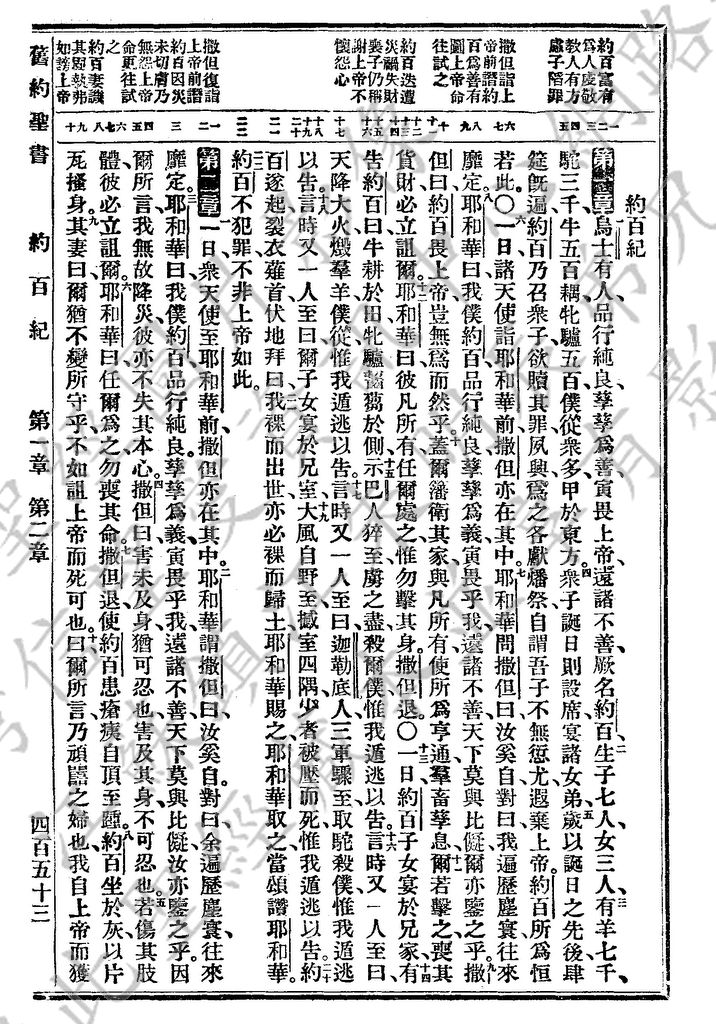 約百紀
第一章烏士有人品行純良孳孳爲善寅畏上帝遠諸不善厥名約百生子七人女三人有羊七千
駝三千牛五百耦牝驢五百僕從衆多甲於東方衆子誕日則設席宴諸女弟歲以誕日之先後肆
筵旣遍約百乃召衆子欲贖其罪夙興爲之各獻燔祭自謂吾子不無愆尤遐棄上帝約百所爲恒
若此〇一日諸天使詣耶和華前撒但亦在其中耶和華問撒但曰汝奚自對曰我遍歷塵寰往來
靡定耶和華曰我僕約百品行純良孳孳爲義寅畏乎我遠諸不善天下莫與比儗爾亦鑒之乎撒
但曰約百畏上帝豈無爲而然乎蓋爾藩衛其家與凡所有使所爲亨通羣畜孳息爾若擊之喪其
貨財必立詛爾耶和華曰彼凡所有任爾處之惟勿擊其身撒但退〇一日約百子女宴於兄家有
告約百曰牛耕於田牝驢齧芻於側示巴人猝至虜之盡殺爾僕惟我遁逃以告言時又一人至曰
天降大火燬羣羊僕從惟我遁逃以告言時又一人至曰迦勒底人三軍驟至取駝殺僕惟我遁逃
以告言時又一人至曰爾子女宴於兄室大風自野至撼室四隅少者被壓而死惟我遁逃以告約
百遂起裂衣薙首伏地拜曰我裸而出世亦必裸而歸土耶和華賜之耶和華取之當頌讚耶和華
約百不犯罪不非上帝如此
第二章一日衆天使至耶和華前撒但亦在其中耶和華謂撒但曰汝奚自對曰余遍歷塵寰往來
靡定耶和華曰我僕約百品行純良孳孳爲義寅畏乎我遠諸不善天下莫與比儗汝亦鑒之乎因
爾所言我無故降災彼亦不失其本心撒但曰害未及身猶可忍也害及其身不可忍也若傷其肢
體彼必立詛爾耶和華曰任爾爲之勿喪其命撒但退使約百患瘡痍自頂至踵約百坐於灰以片
瓦搔身其妻曰爾猶不變所守乎不如詛上帝而死可也曰爾所言乃頑嚚之婦也我自上帝而獲
約百富有
爲人虔敬
教人有方
慮子陷罪
撒但詣上
帝前譖約
百爲善有
圖上帝命
往試之
約百迭遭
災禍失財
喪子仍稱
謝上帝不
懷怨心
撒但復詣
上帝前譖
約百因災
未切膚乃
無怨上帝
命更往試
之
約百妻譏
其恩執弗
如謗上帝
舊約聖書 約百紀 第一章 第二章 四百五十三